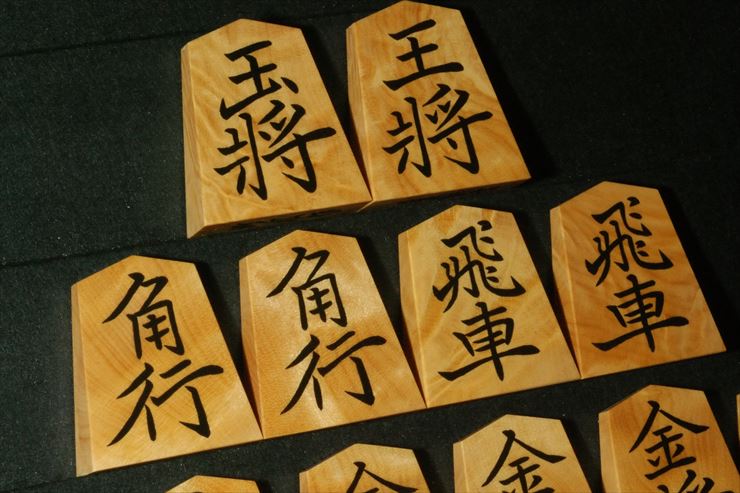 玉將
王將
角行
角行
飛車
飛車
金
金
金